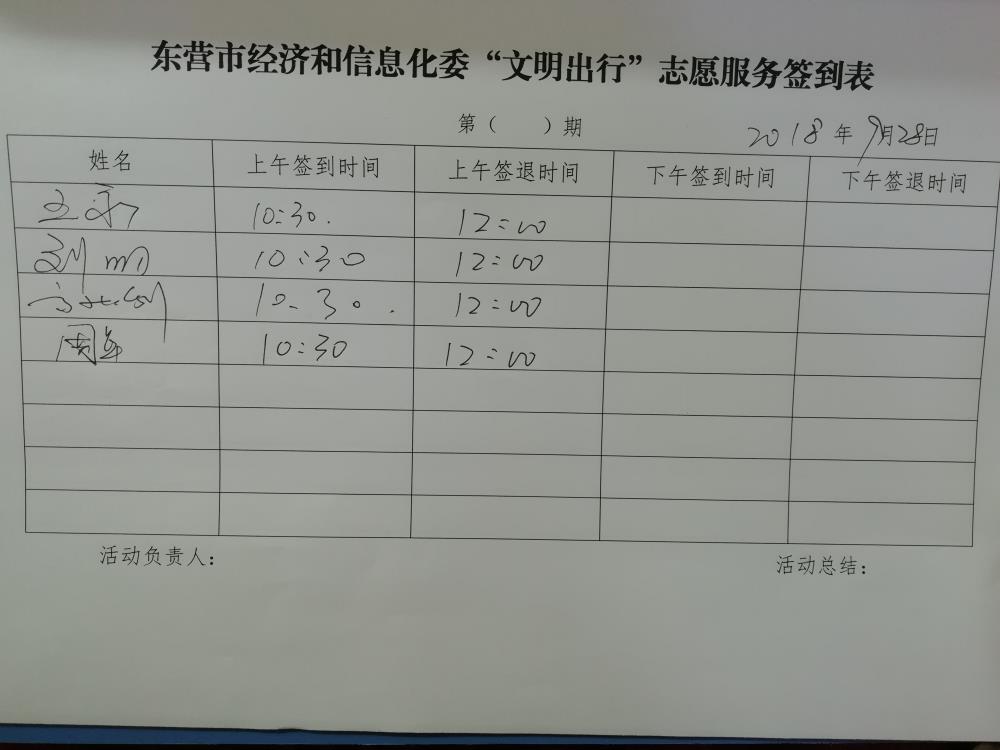 东营市经济和信息化委“文明出行”志愿服务签到表
第（ ）期 2018年9月28日
姓名 上午签到时间 上午签退时间 下午签到时间 下午签退时间
10:30. 12:00
刘 10:30 12:00
10:30. 12:00
周 10:30 12:00
活动负责人： 活动总结：